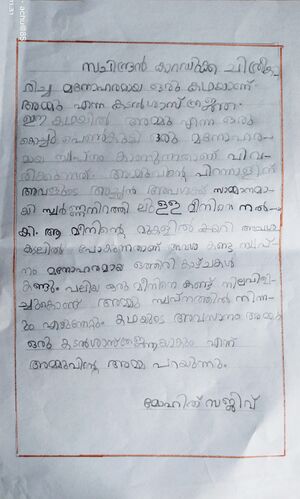 സചിന്ദ്രൻ കാറഡുക്ക ചിത്രീക
രിച്ച മനോഹരമായ ഒരു കഥയാണ്
അമ്മു എന്ന കടൽശാസ്ത്രജ്ഞ.
ഈ കഥയിൽ അമ്മു എന്ന ഒരു
കൊച്ചു പെൺകുട്ടി ഒരു മനോഹര
മായ സ്വപ്നം കാണുന്നതാണ് വിവ
രിക്കുന്നത്. അമ്മുവിന്റെ പിറന്നാളിന്
അവളുടെ അച്ഛൻ അവൾക്ക് സമ്മാനമാ
കി സ്വർണ്ണനിറത്തി ലുള്ള മീനിനെ നൽ
കി. ആ മീനിന്റെ മുകളിൽ കയറി
കടലിൽ പോകുന്നതാണ് അവൾ കണ്ട സ്വപ്
നം മനോഹരമായ ഒത്തിരി കാഴ്ചകൾ
കണ്ടും. വലിയ ഒരു മീനിനെ കണ്ട് നിലവിളി
ച്ചുകൊണ്ട് അമ്മു സ്വപ്നത്തിൽ നിന്ന
ും എണീറ്റു. കഥയുടെ അവസാനം അമ്മു
ഒരു കടൽശാസ്ത്രജ്ഞയാകും എന്ന്
അമ്മുവിന്റെ അമ്മ പറയുന്നു.
മോഹിത് സജീവ്